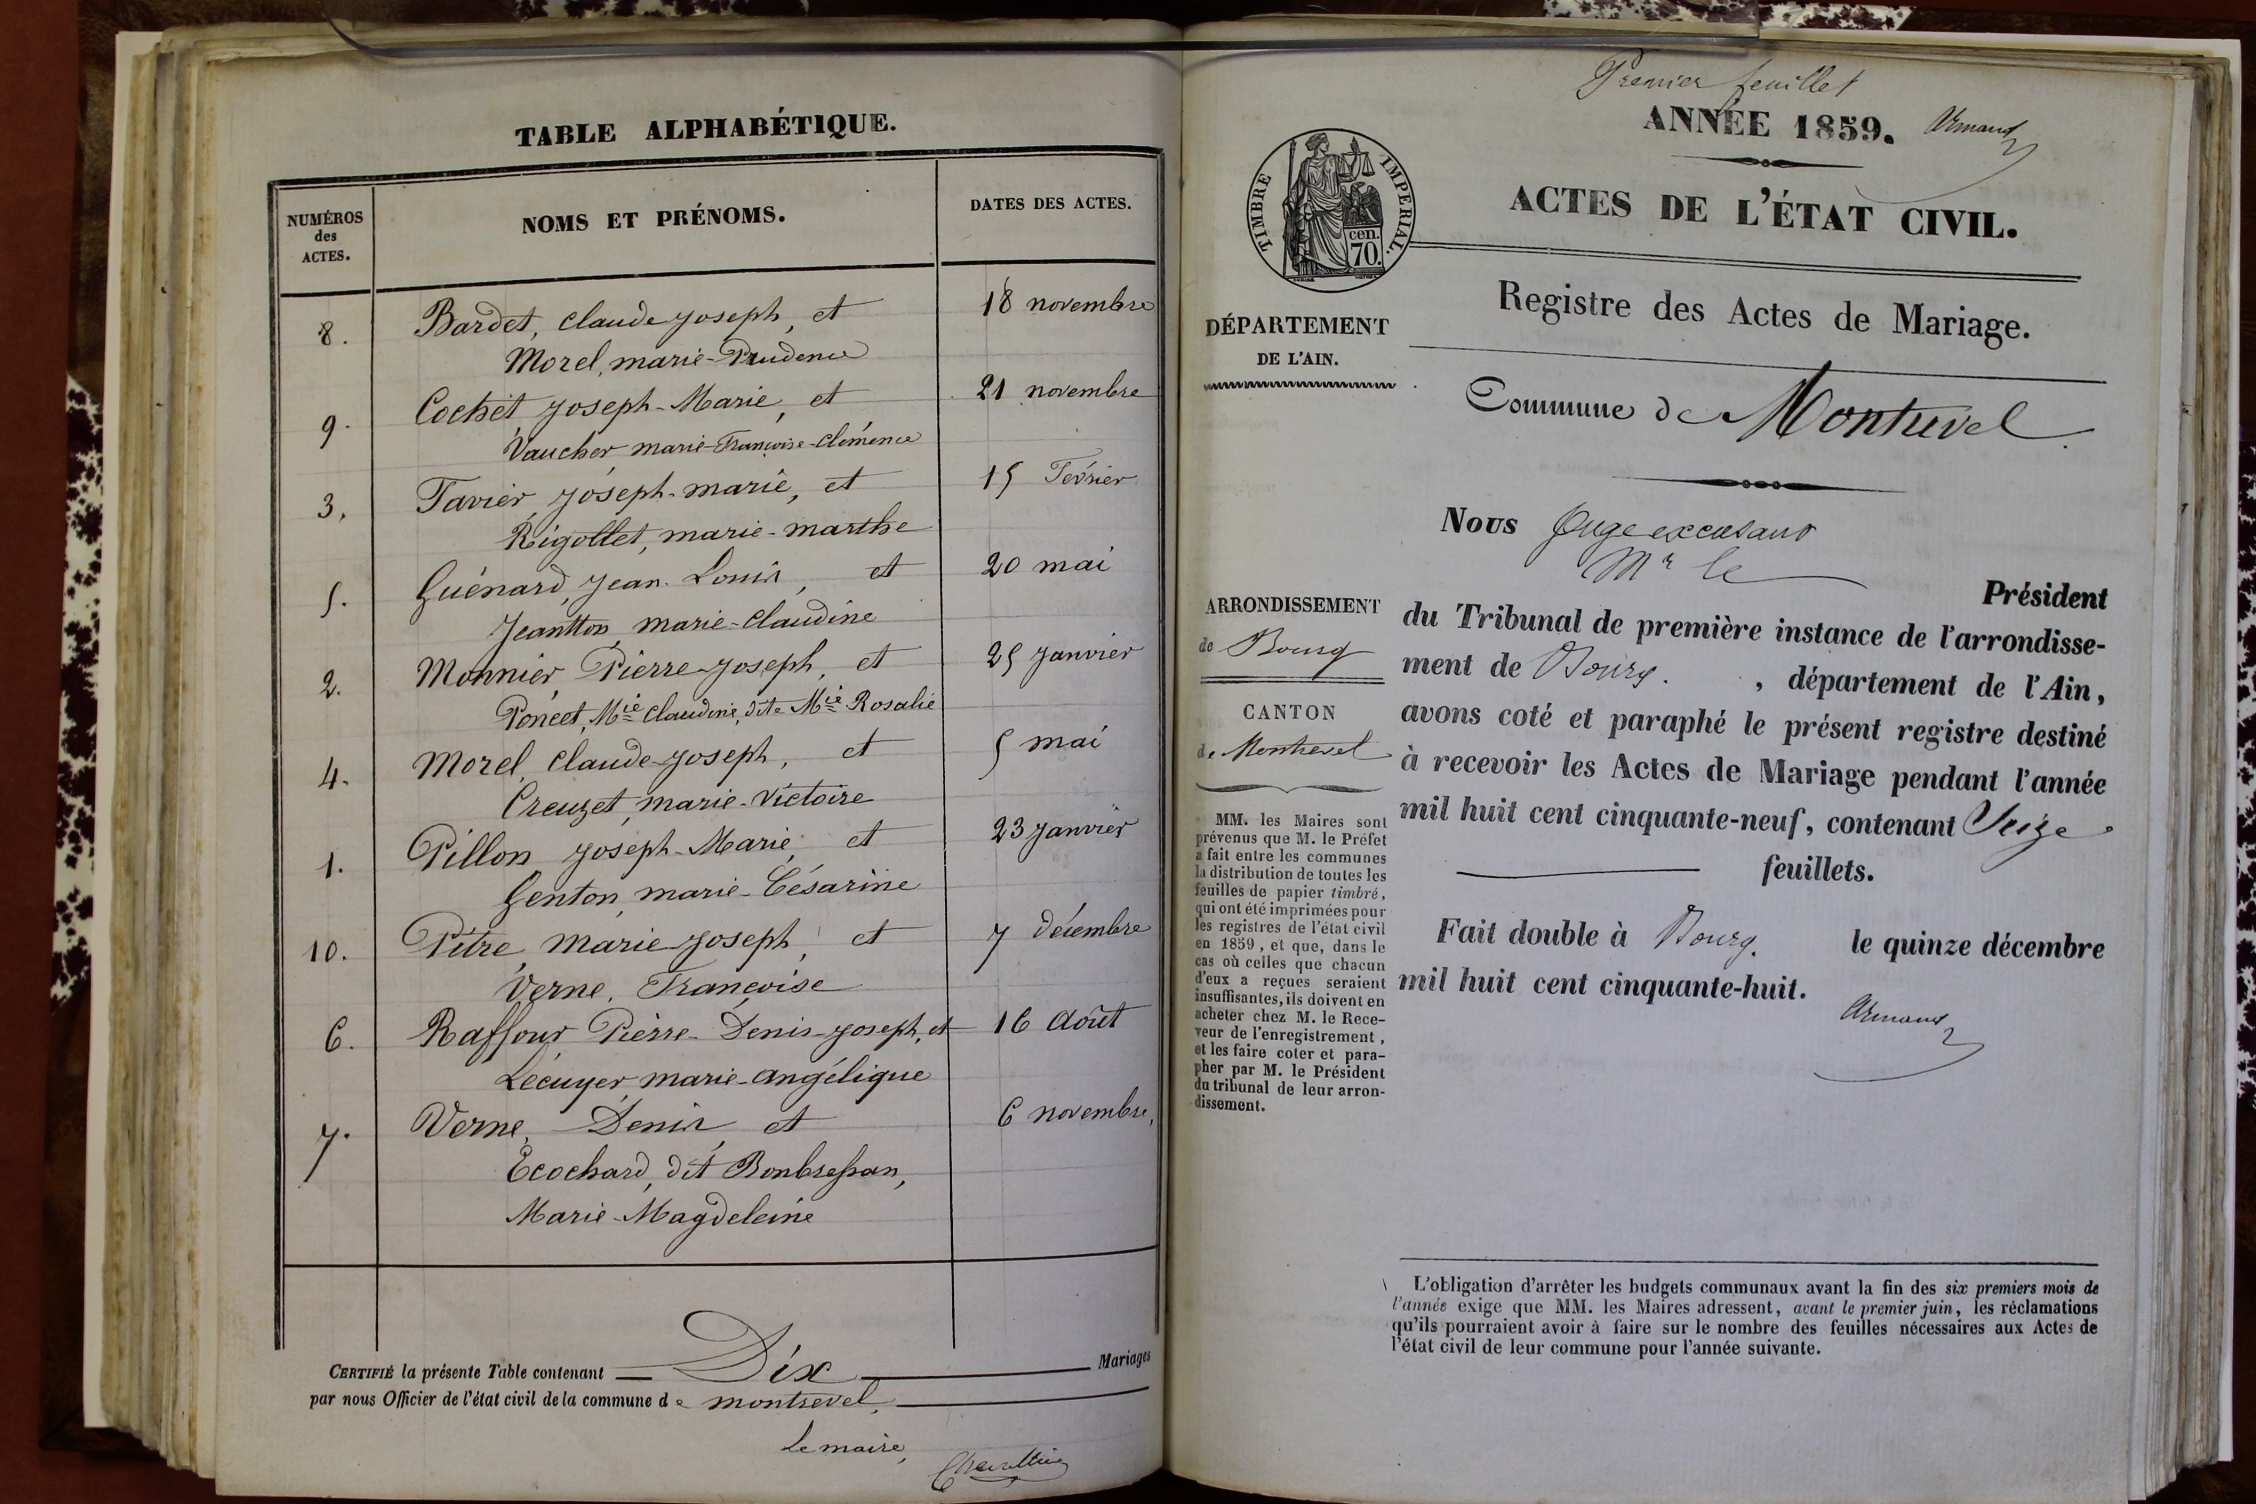 TABLE ALPHABÉTIQUE.
NUMÉROS
des
ACTES.
NOMS ET PRÉNOMS.
DATES DES ACTES.
8. Bardet, Claude Joseph, et 18 novembre
Morel, marie-Prudence
9. Cochet Joseph-Marie, et 21 novembre
Vaucher marie-Françoise-Clémence
3. Favier, Joseph-marie, et 15 Février
Rigollet, marie-marthe
5. Guénard, Jean-Louis, et 20 mai
Jeantton marie-Claudine
2. Monnier, Pierre-Joseph, et 25 Janvier
Poncet, Mie Claudine, dite Mie Rosalie
4. Morel, Claude-Joseph, et 5 mai
Creuzet, marie-Victoire
1. Pillon Joseph-Marie, et 23 Janvier
Genton, marie-Césarine
10. Pitre, Marie-Joseph, et 7 décembre
Verne, Françoise
6. Raffour Pierre-Denis-Joseph, et 16 Août
Lécuyer marie-angélique
7. Verne, Denis, et 6 novembre,
Ecochard, dit Bonbressan,
Marie-Magdeleine
CERTIFIÉ la présente Table contenant Dix Mariages
par nous Officier de l'état civil de la commune de montrevel,
Le maire,
Premier feuillet
ANNÉE 1859. Armand
TIMBRE IMPERIAL.
cen.
70.
ACTES DE L'ÉTAT CIVIL.
Registre des Actes de Mariage.
Commune de Montrevel
DÉPARTEMENT
DE L'AIN.
ARRONDISSEMENT
de Bourg
CANTON
de Montrevel
MM. les Maires sont
prévenus que M. le Préfet
a fait entre les communes
la distribution de toutes les
feuilles de papier timbré,
qui ont été imprimées pour
les registres de l'état civil
en 1859, et que, dans le
cas où celles que chacun
d'eux a reçues seraient
insuffisantes, ils doivent en
acheter chez M. le Rece-
veur de l'enregistrement,
et les faire coter et para-
pher par M. le Président
du tribunal de leur arron-
dissement.
Nous Juge excusant
Mr le Président
du Tribunal de première instance de l'arrondisse-
ment de Bourg. , département de l'Ain,
avons coté et paraphé le présent registre destiné
à recevoir les Actes de Mariage pendant l'année
mil huit cent cinquante-neuf, contenant Seize
feuillets.
Fait double à Bourg. le quinze décembre
mil huit cent cinquante-huit.
Armand
L'obligation d'arrêter les budgets communaux avant la fin des six premiers mois de
l'année exige que MM. les Maires adressent, avant le premier juin, les réclamations
qu'ils pourraient avoir à faire sur le nombre des feuilles nécessaires aux Actes de
l'état civil de leur commune pour l'année suivante.